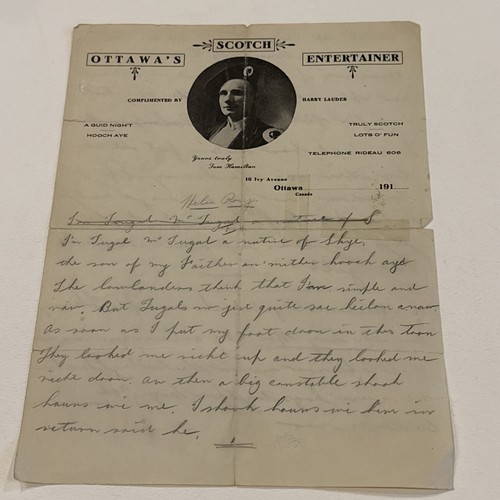 SCOTCH
OTTAWA'S ENTERTAINER
COMPLIMENTED BY HARRY LAUDER
A GUID NIGHT TRULY SCOTCH
HOOCH AYE LOTS O' FUN
TELEPHONE RIDEAU 608
Yours truly
Tom Hamilton
16 Ivy Avenue
Ottawa 191
Canada
Helen
I'm Tugal McTugal a native of S
I'm Tugal McTugal a native of Skye,
the son of my Faither an' mither hooch aye
The lowlanders think that I'm simple and
raw. But Tugals no just quite sae heelon ava.
As soon as I put my foot doon in this toon
They looked me richt up and they looked me
richt doon. an then a big constable shook
hauns wi me. I shook hauns wi him in
return said he,